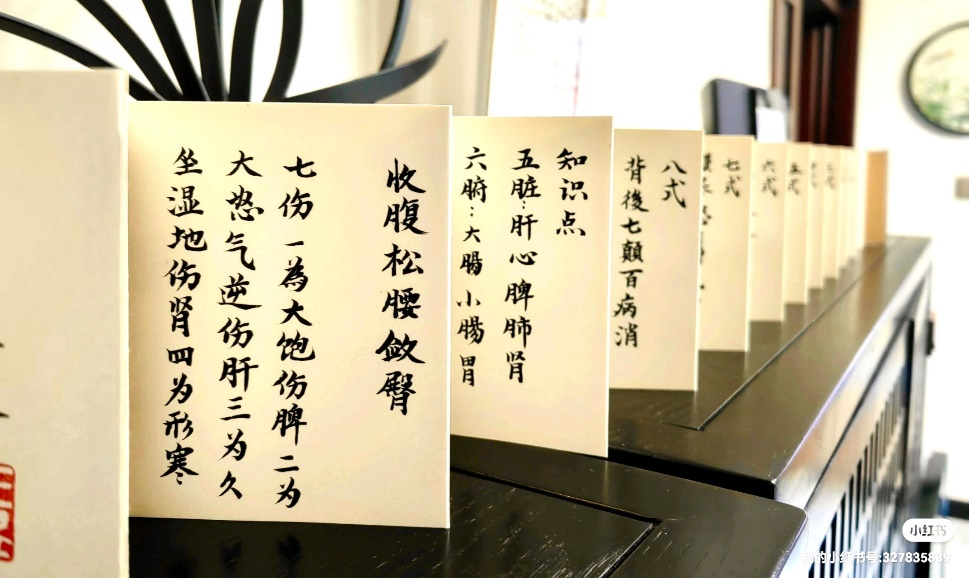 五式
六式
七式
八式
背後七顛百病消
知识点
五脏：肝心脾肺肾
六腑：大腸小腸胃
收腹松腰敛臀
七伤 一為大饱伤脾二为
大怒气逆伤肝三为久
坐湿地伤肾四为形寒
小红书
的小红书号:327835889